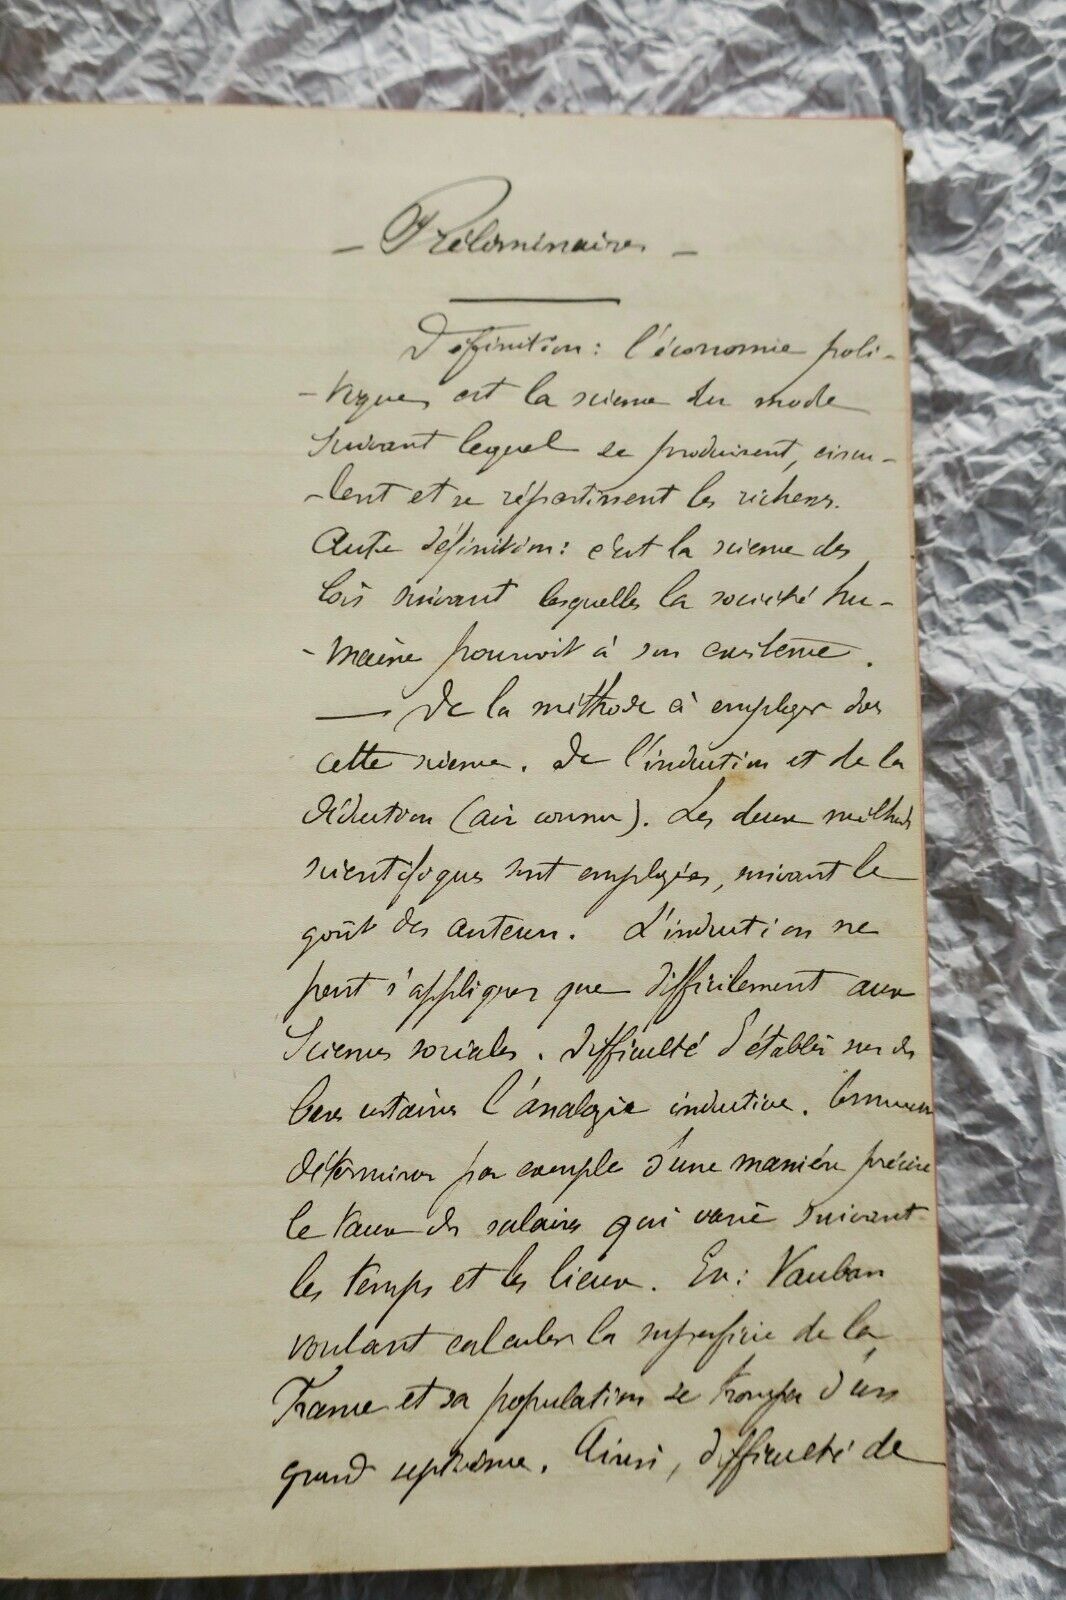 – Préliminaires –
Définition : l'économie poli-
-tique est la science du mode
suivant lequel se produisent, circu-
-lent et se répartissent les richesses.
Autre définition : c'est la science des
lois suivant lesquelles la société hu-
-maine pourvoit à son existence.
— De la méthode à employer dans
cette science. De l'induction et de la
déduction (air connu). Les deux méthodes
scientifiques sont employées, suivant le
goût des auteurs. L'induction ne
peut s'appliquer que difficilement aux
sciences sociales. Difficulté d'établir sur des
bases certaines l'analogie inductive. Comment
déterminer par exemple d'une manière précise
le taux des salaires qui varie suivant
les temps et les lieux. Ex : Vauban
voulant calculer la superficie de la
France et sa population se trompa d'un
grand septième. Ainsi, difficulté de